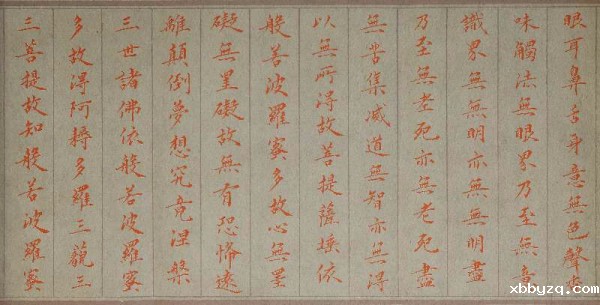 眼耳鼻舌身意無色聲香
味觸法無眼界乃至無意
識界無無明亦無無明盡
乃至無老死亦無老死盡
無苦集滅道無智亦無淂
以無所淂故菩提薩埵依
般若波羅蜜多故心無罣
礙無罣礙故無有恐怖遠
離顛倒夢想究竟涅槃
三世諸佛依般若波羅蜜
多故淂阿耨多羅三藐三
三菩提故知般若波羅蜜
xbbyzq.com